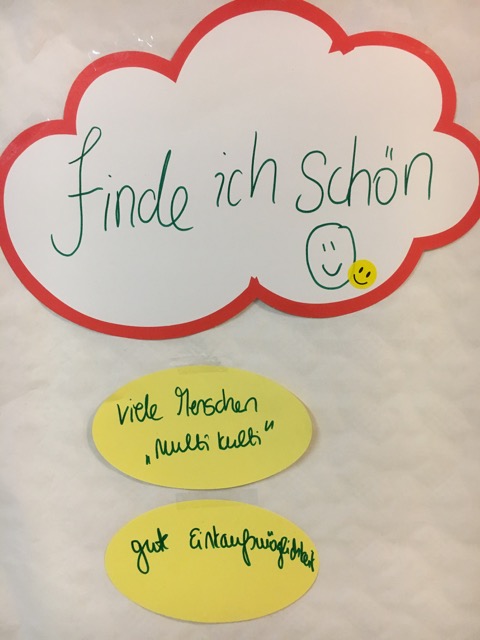 finde ich schön
viele Menschen
„Multi kulti"
gute Einkaufsmöglichkeit